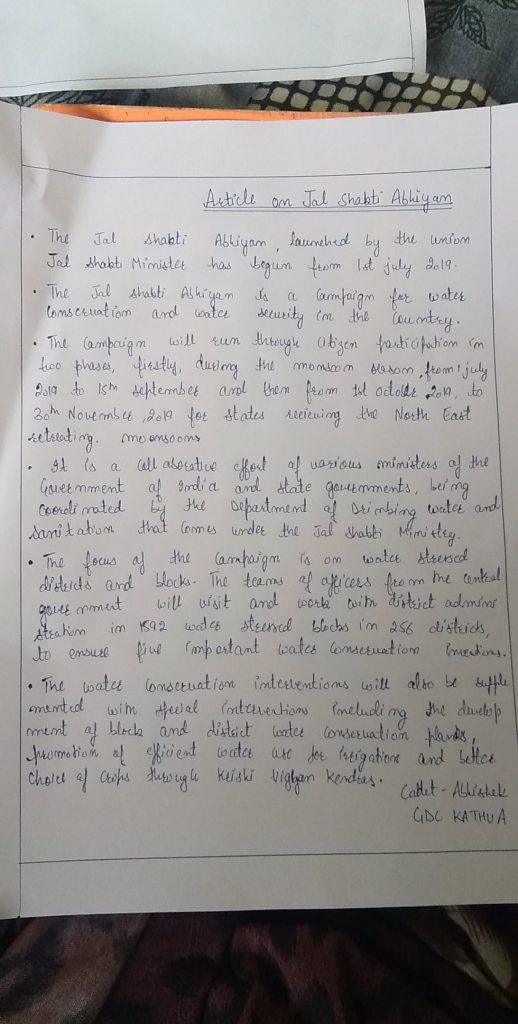 Article on Jal Shakti Abhiyan
• The Jal Shakti Abhiyan, launched by the union
Jal Shakti Minister has begun from 1st july 2019.
• The Jal Shakti Abhiyan is a Campaign for water
Conservation and water security in the Country.
• The Campaign will run through Citizen participation in
two phases, firstly, during the monsoon season, from 1 july
2019 to 15th september and then from 1st october 2019, to
30th November, 2019 for States recieving the North East
retreating. moonsoons
• It is a collaborative effort of various ministers of the
Government of India and state governments, being
Coordinated by the Department of Drinking water and
Sanitation that Comes under the Jal Shakti Ministry.
• The focus of the Campaign is on water stressed
districts and blocks. The teams of officers from the central
government will visit and work with district admini
stration in 1592 water stressed blocks in 256 districts,
to ensure five important water Conservation
• The water Conservation interventions will also be supple
mented with special interventions including the develop
ment of block and district water conservation plans,
promotion of efficient water use for irrigation and better
choice of crops through Krishi Vigyan Kendras.
Cadet - Abhishek
GDC KATHUA